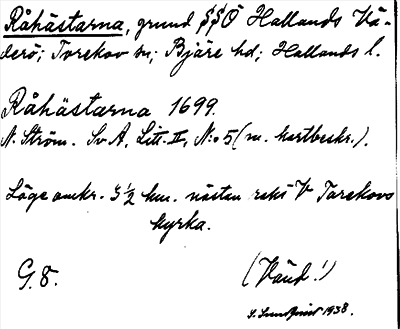 Råhästarna, grund SSÖ Hallands Vä-
derö; Torekov sn; Bjäre hd; Hallands l.
Råhästarna 1699.
N. Ström. Sv. A, Litt. II, N:o 5 (m. kartbeskr.).
Läge omkr. 3 1/2 km. nästan rakt V Torekovs
kyrka.
G. 8.
(Vänd!)
S. Lundqvist 1938.